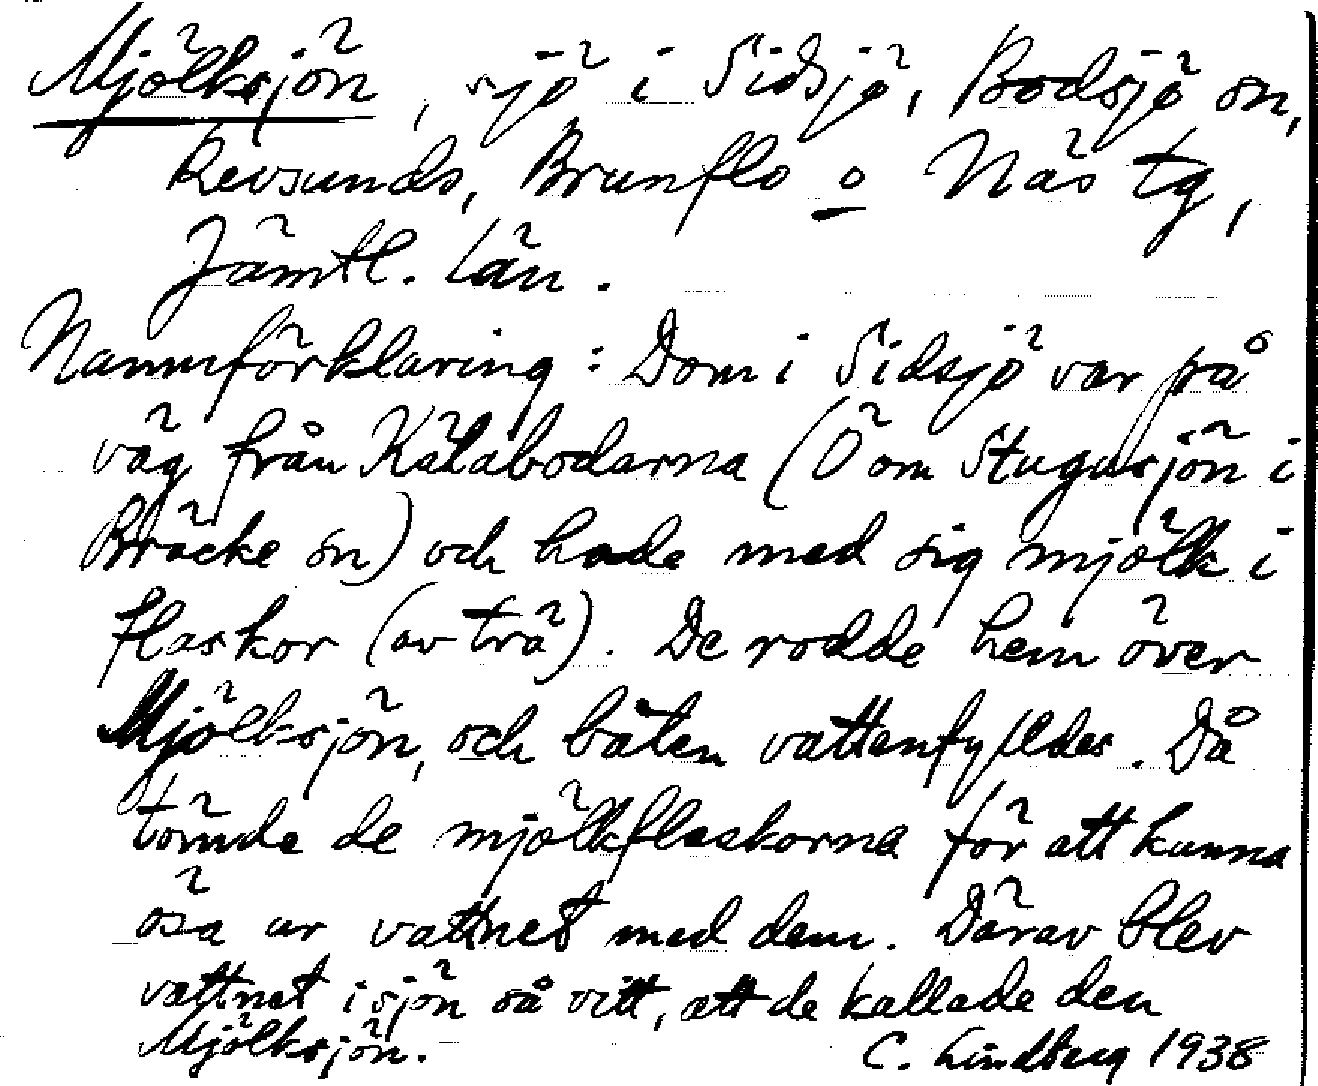 Mjölksjön, sjö i Sidsjö, Bodsjö sn,
Revsunds, Brunflo o Näs tg,
Jämtl. län.
Namnförklaring: Dom i Sidsjö var på
väg från Kälabodarna (Ö om Stugusjön i
Bräcke sn) och hade med sig mjölk i
flaskor (av trä). De rodde hem över
Mjölksjön, och båten vattenfylldes. Då
tömde de mjölkflaskorna för att kunna
ösa ur vattnet med dem. Därav blev
vattnet i sjön så vitt, att de kallade den
Mjölksjön.
C. Lindberg 1938